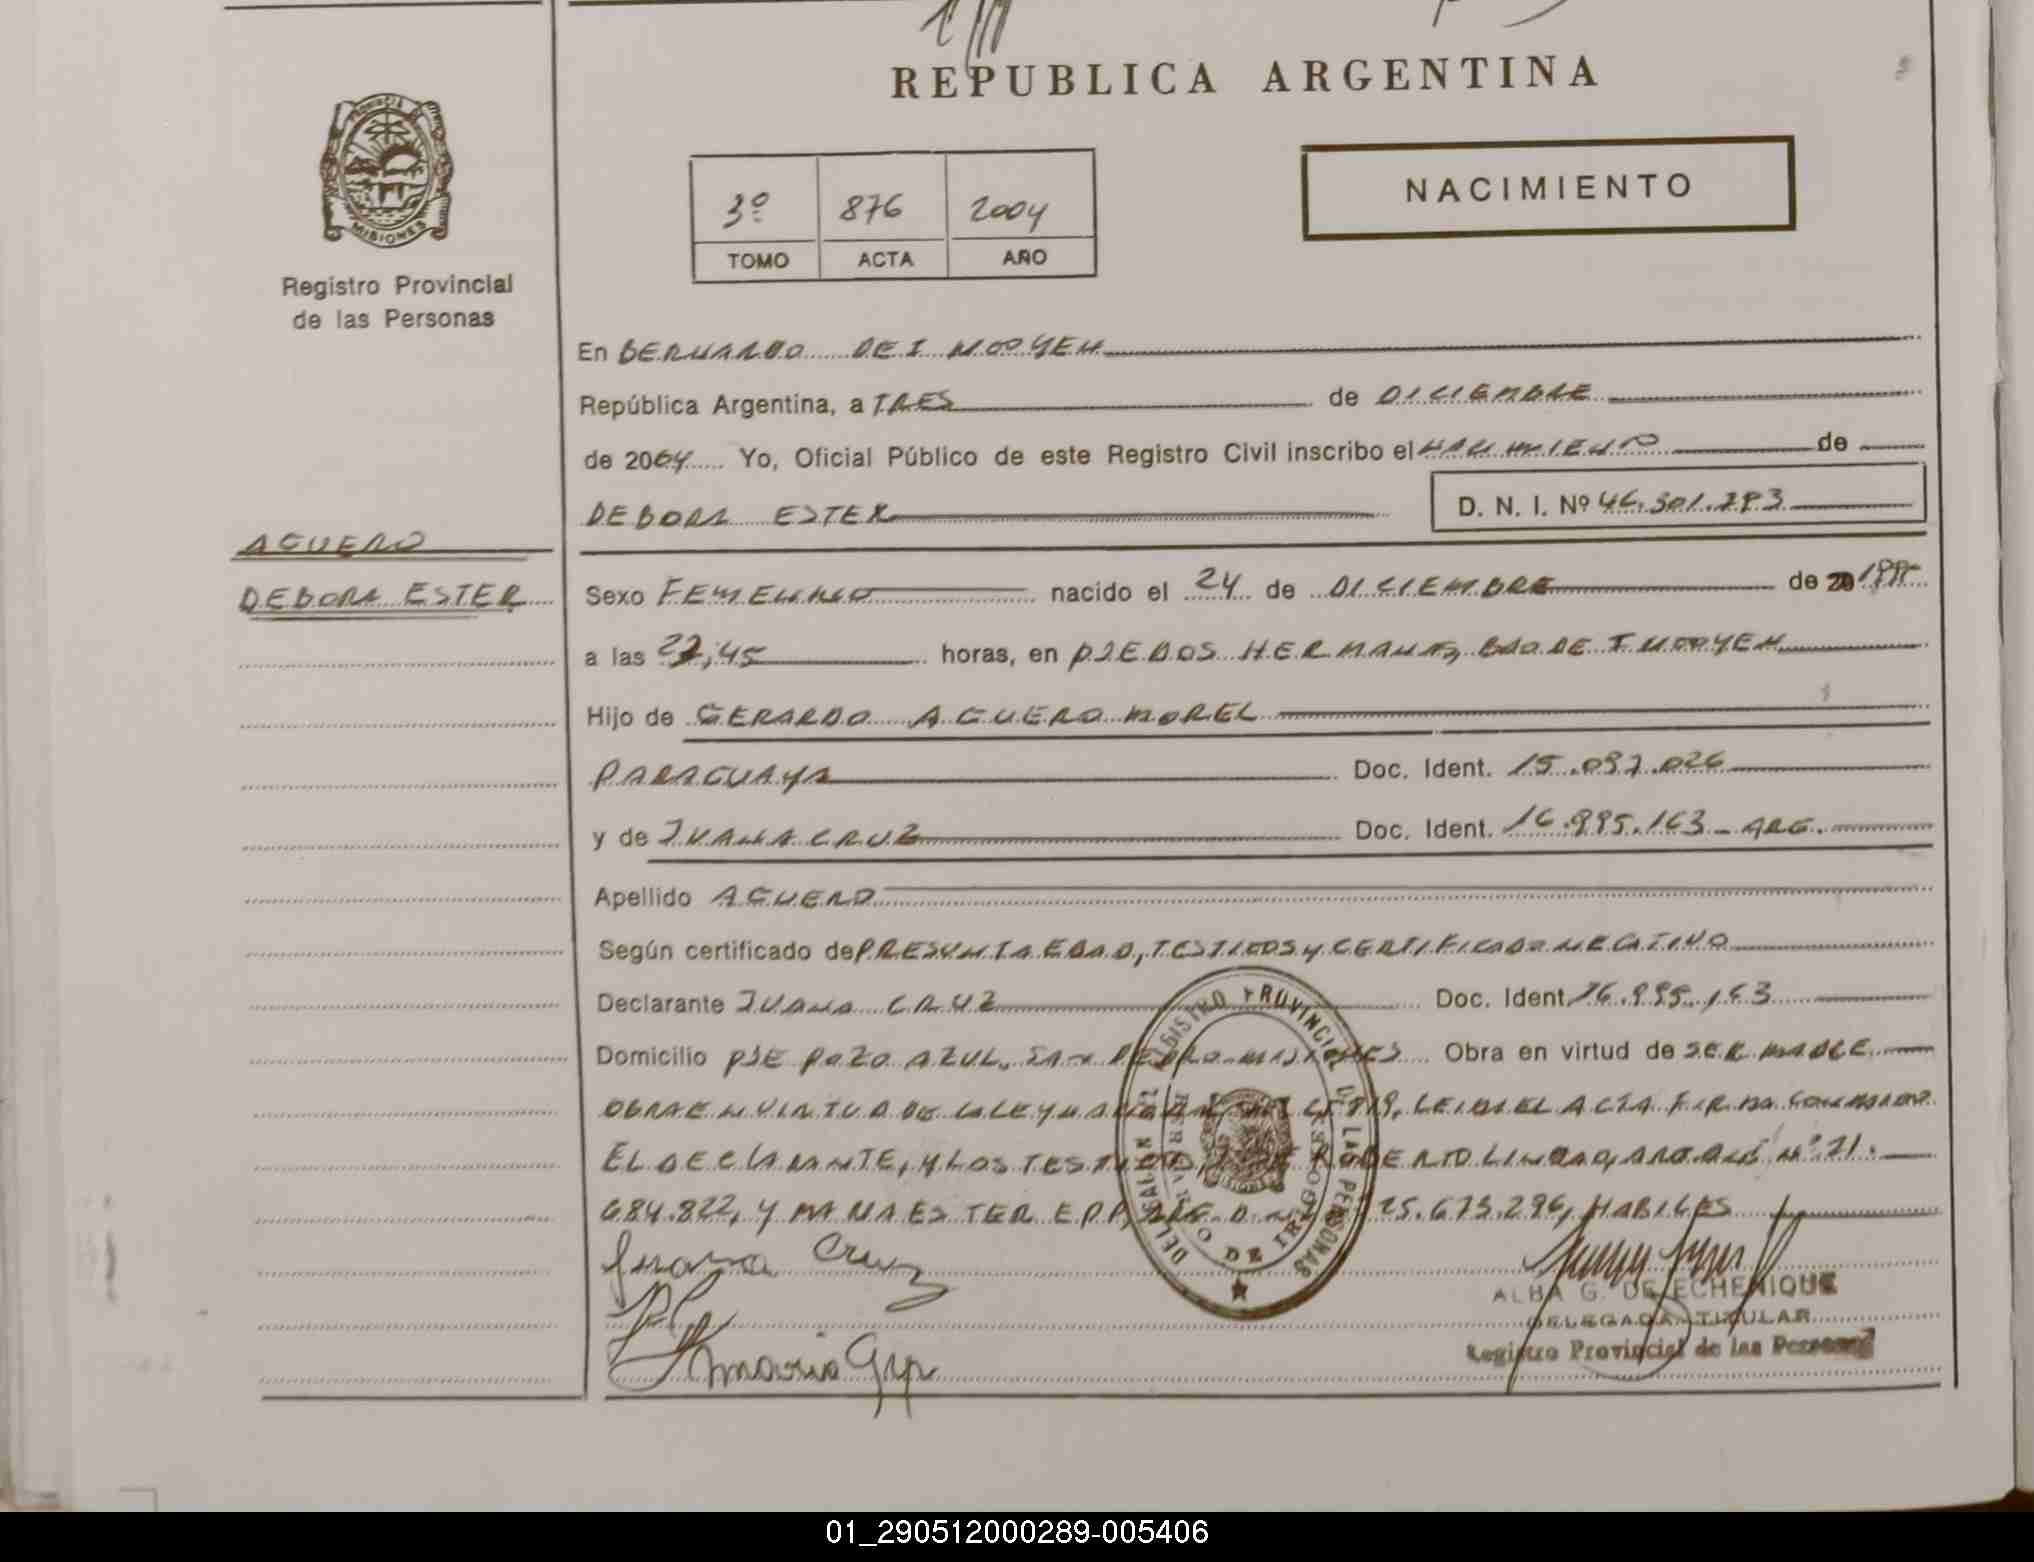 REPUBLICA ARGENTINA
PROVINCIA
MISIONES
Registro Provincial
de las Personas
NACIMIENTO
3º 876 2004
TOMO ACTA AÑO
En BERNARDO DE IRIGOYEN
República Argentina, a TRES de DICIEMBRE
de 2004 Yo, Oficial Público de este Registro Civil inscribo el NACIMIENTO de
DEBORA ESTER D. N. I. Nº 46.301.793
AGUERO
DEBORA ESTER
Sexo FEMENINO nacido el 24 de DICIEMBRE de 20
a las 22,45 horas, en PJE DOS HERMANAS, BDO DE IRIGOYEN
Hijo de GERARDO AGUERO MOREL
PARAGUAYA Doc. Ident. 15.097.026
y de JUANA CRUZ Doc. Ident. 16.995.163 - ARG.
Apellido AGUERO
Según certificado de PRESUNTA EDAD, TESTIGOS Y CERTIFICADO NEGATIVO
Declarante JUANA CRUZ Doc. Ident. 16.995.163
Domicilio PJE POZO AZUL, SAN PEDRO MISIONES Obra en virtud de SER MADRE
OBRA EN VIRTUD DE LA LEY LEIDA EL ACTA FIRMA CONMIGO
EL DECLARANTE, Y LOS TESTIGOS ROBERTO Nº 21.
684.822, Y MARIA ESTER EPP, ARG. D 25.673.296, HABILES
Juana Cruz
Maria Epp
REGISTRO PROVINCIAL DE LAS PERSONAS
BERNARDO DE IRIGOYEN
ALBA G. DE ECHENIQUE
DELEGADA TITULAR
Registro Provincial de las Personas
01_290512000289-005406